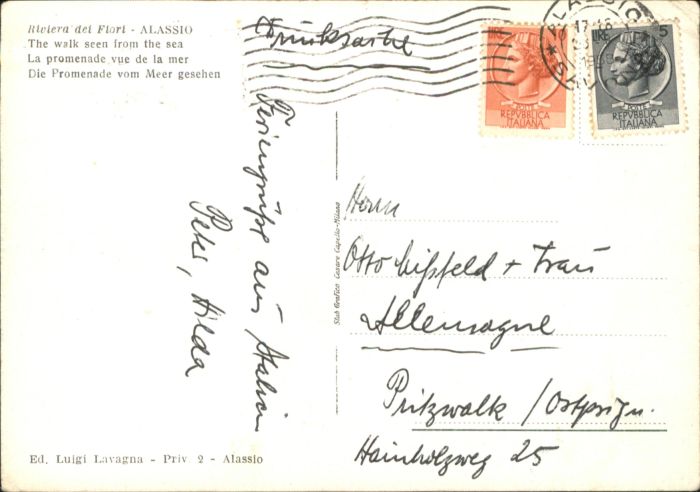 Riviera dei Fiori - ALASSIO
The walk seen from the sea
La promenade vue de la mer
Die Promenade vom Meer gesehen
Drucksache
LIRE
REPVBBLICA
ITALIANA
LIRE 5
POSTE
REPVBBLICA
ITALIANA
ALASSIO
Feriengrüße aus Italien
Peter, Hilda
Stab Grafico Cesare Capello-Milano
Herrn
Otto + Frau
Allemagne
Pritzwalk / Ostprign.
Hainholzweg 25
Ed. Luigi Lavagna - Priv. 2 - Alassio